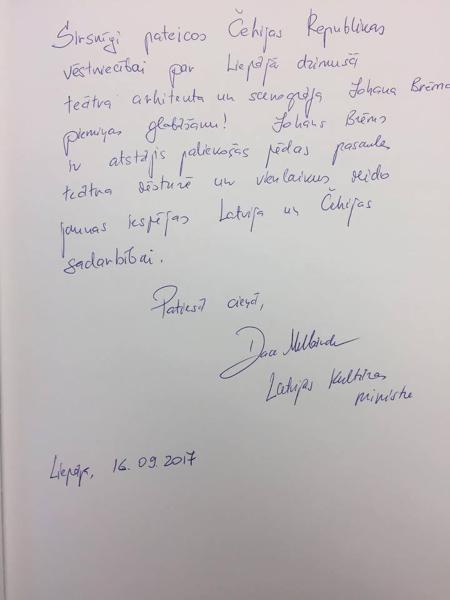 Sirsnīgi pateicos Čehijas Republikas
vēstniecībai par Liepājā dzimušā
teātra arhitekta un scenogrāfa Johana Brēma
piemiņas glabāšanu! Johans Brēms
ir atstājis paliekošas pēdas pasaules
teātra vēsturē un vienlaikus veido
jaunas iespējas Latvijas un Čehijas
sadarbībai.
Patiesā cieņā,
Dace Melbārde
Latvijas Kultūras
ministre
Liepāja, 16.09.2017